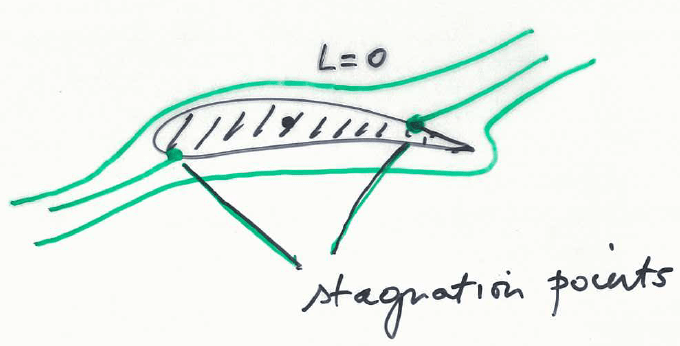 L=0
stagnation points